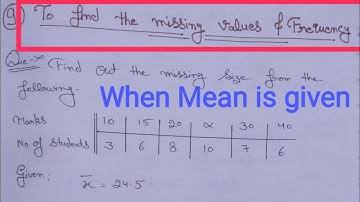 ⑨ To find the missing values & Frequency
Que:→ Find out the missing size from the
following.
When Mean is given
Marks 10 15 20 α 30 40
No of students 3 6 8 10 7 6
Given:
x̄ = 24.5